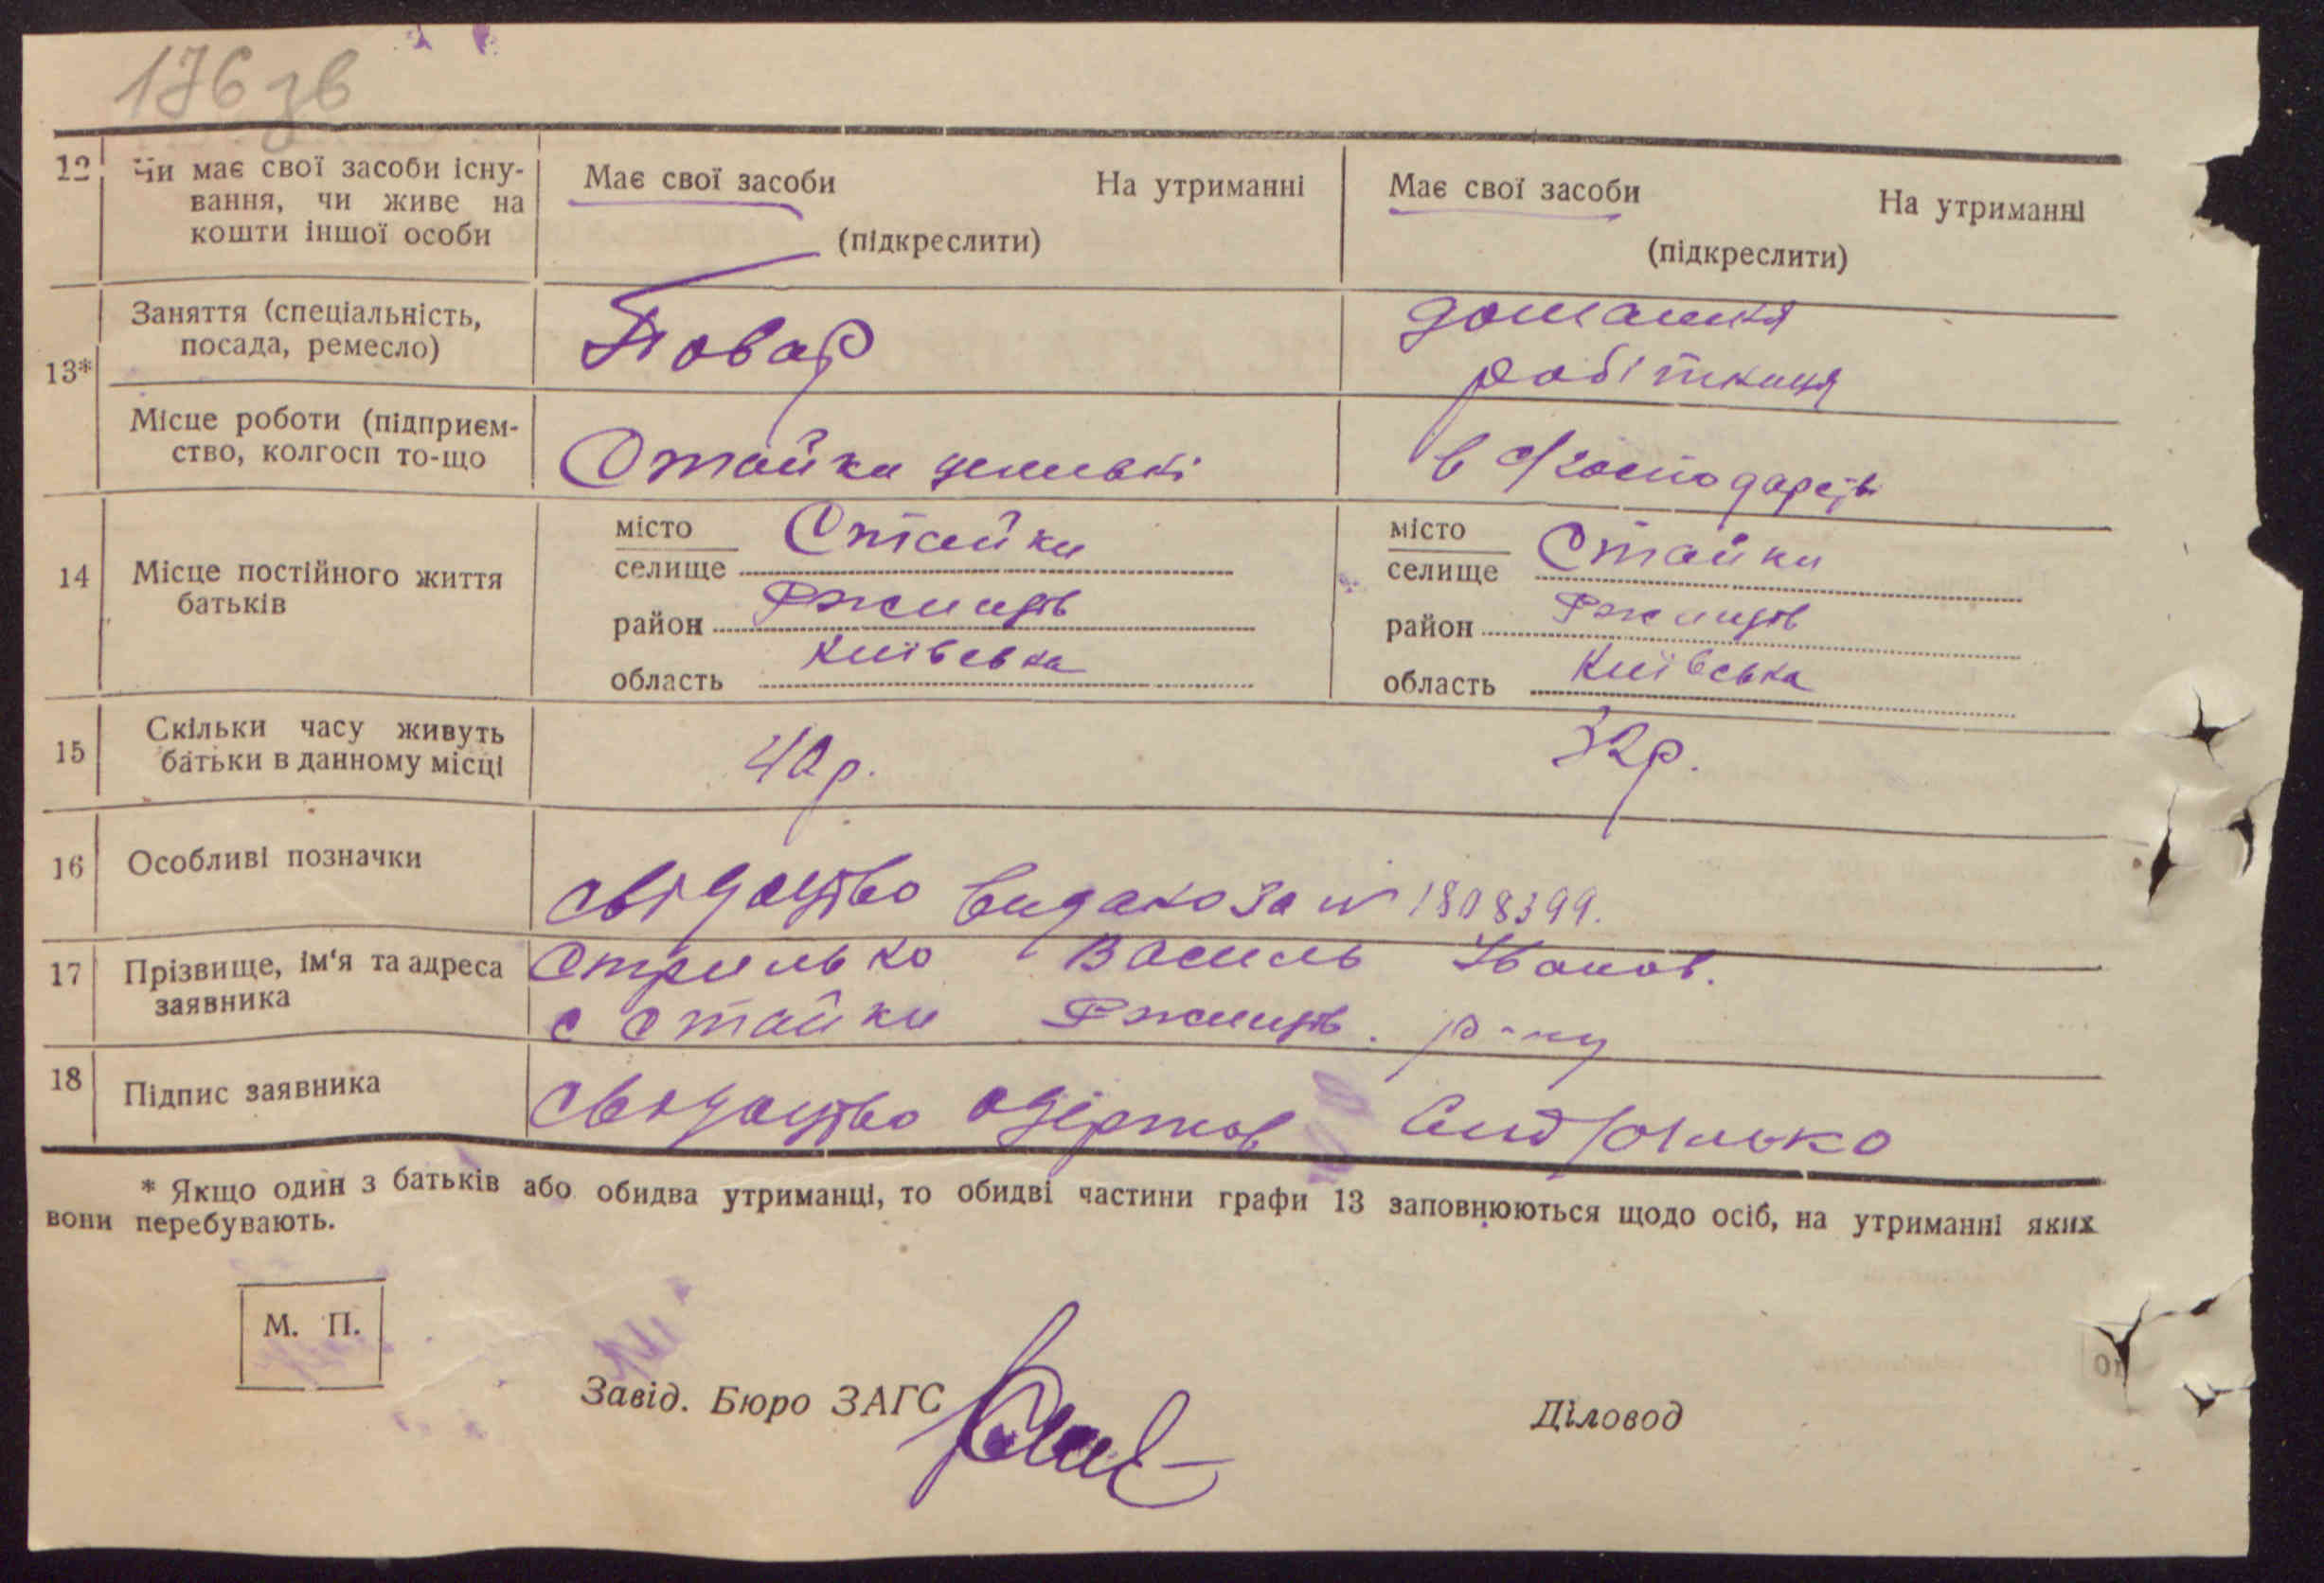 176 зв
12 Чи має свої засоби існу-
вання, чи живе на
кошти іншої особи
Має свої засоби На утриманні
(підкреслити)
Має свої засоби На утриманні
(підкреслити)
13*
Заняття (спеціальність,
посада, ремесло)
Повар
домашня
робітниця
Місце роботи (підприєм-
ство, колгосп то-що
Стайки
в с/господарств
14 Місце постійного життя
батьків
місто
селище Стайки
район Ржищів
область Київська
місто
селище Стайки
район Ржищів
область Київська
15 Скільки часу живуть
батьки в данному місці
40р. 32р.
16 Особливі позначки
свідоцтво видано за № 1808399.
17 Прізвище, ім'я та адреса
заявника
Стрилько Василь Іванов.
с Стайки Ржищів. р-ну
18 Підпис заявника
свідоцтво одержав
* Якщо один з батьків або обидва утриманці, то обидві частини графи 13 заповнюються щодо осіб, на утриманні яких
вони перебувають.
М. П.
Завід. Бюро ЗАГС
Діловод